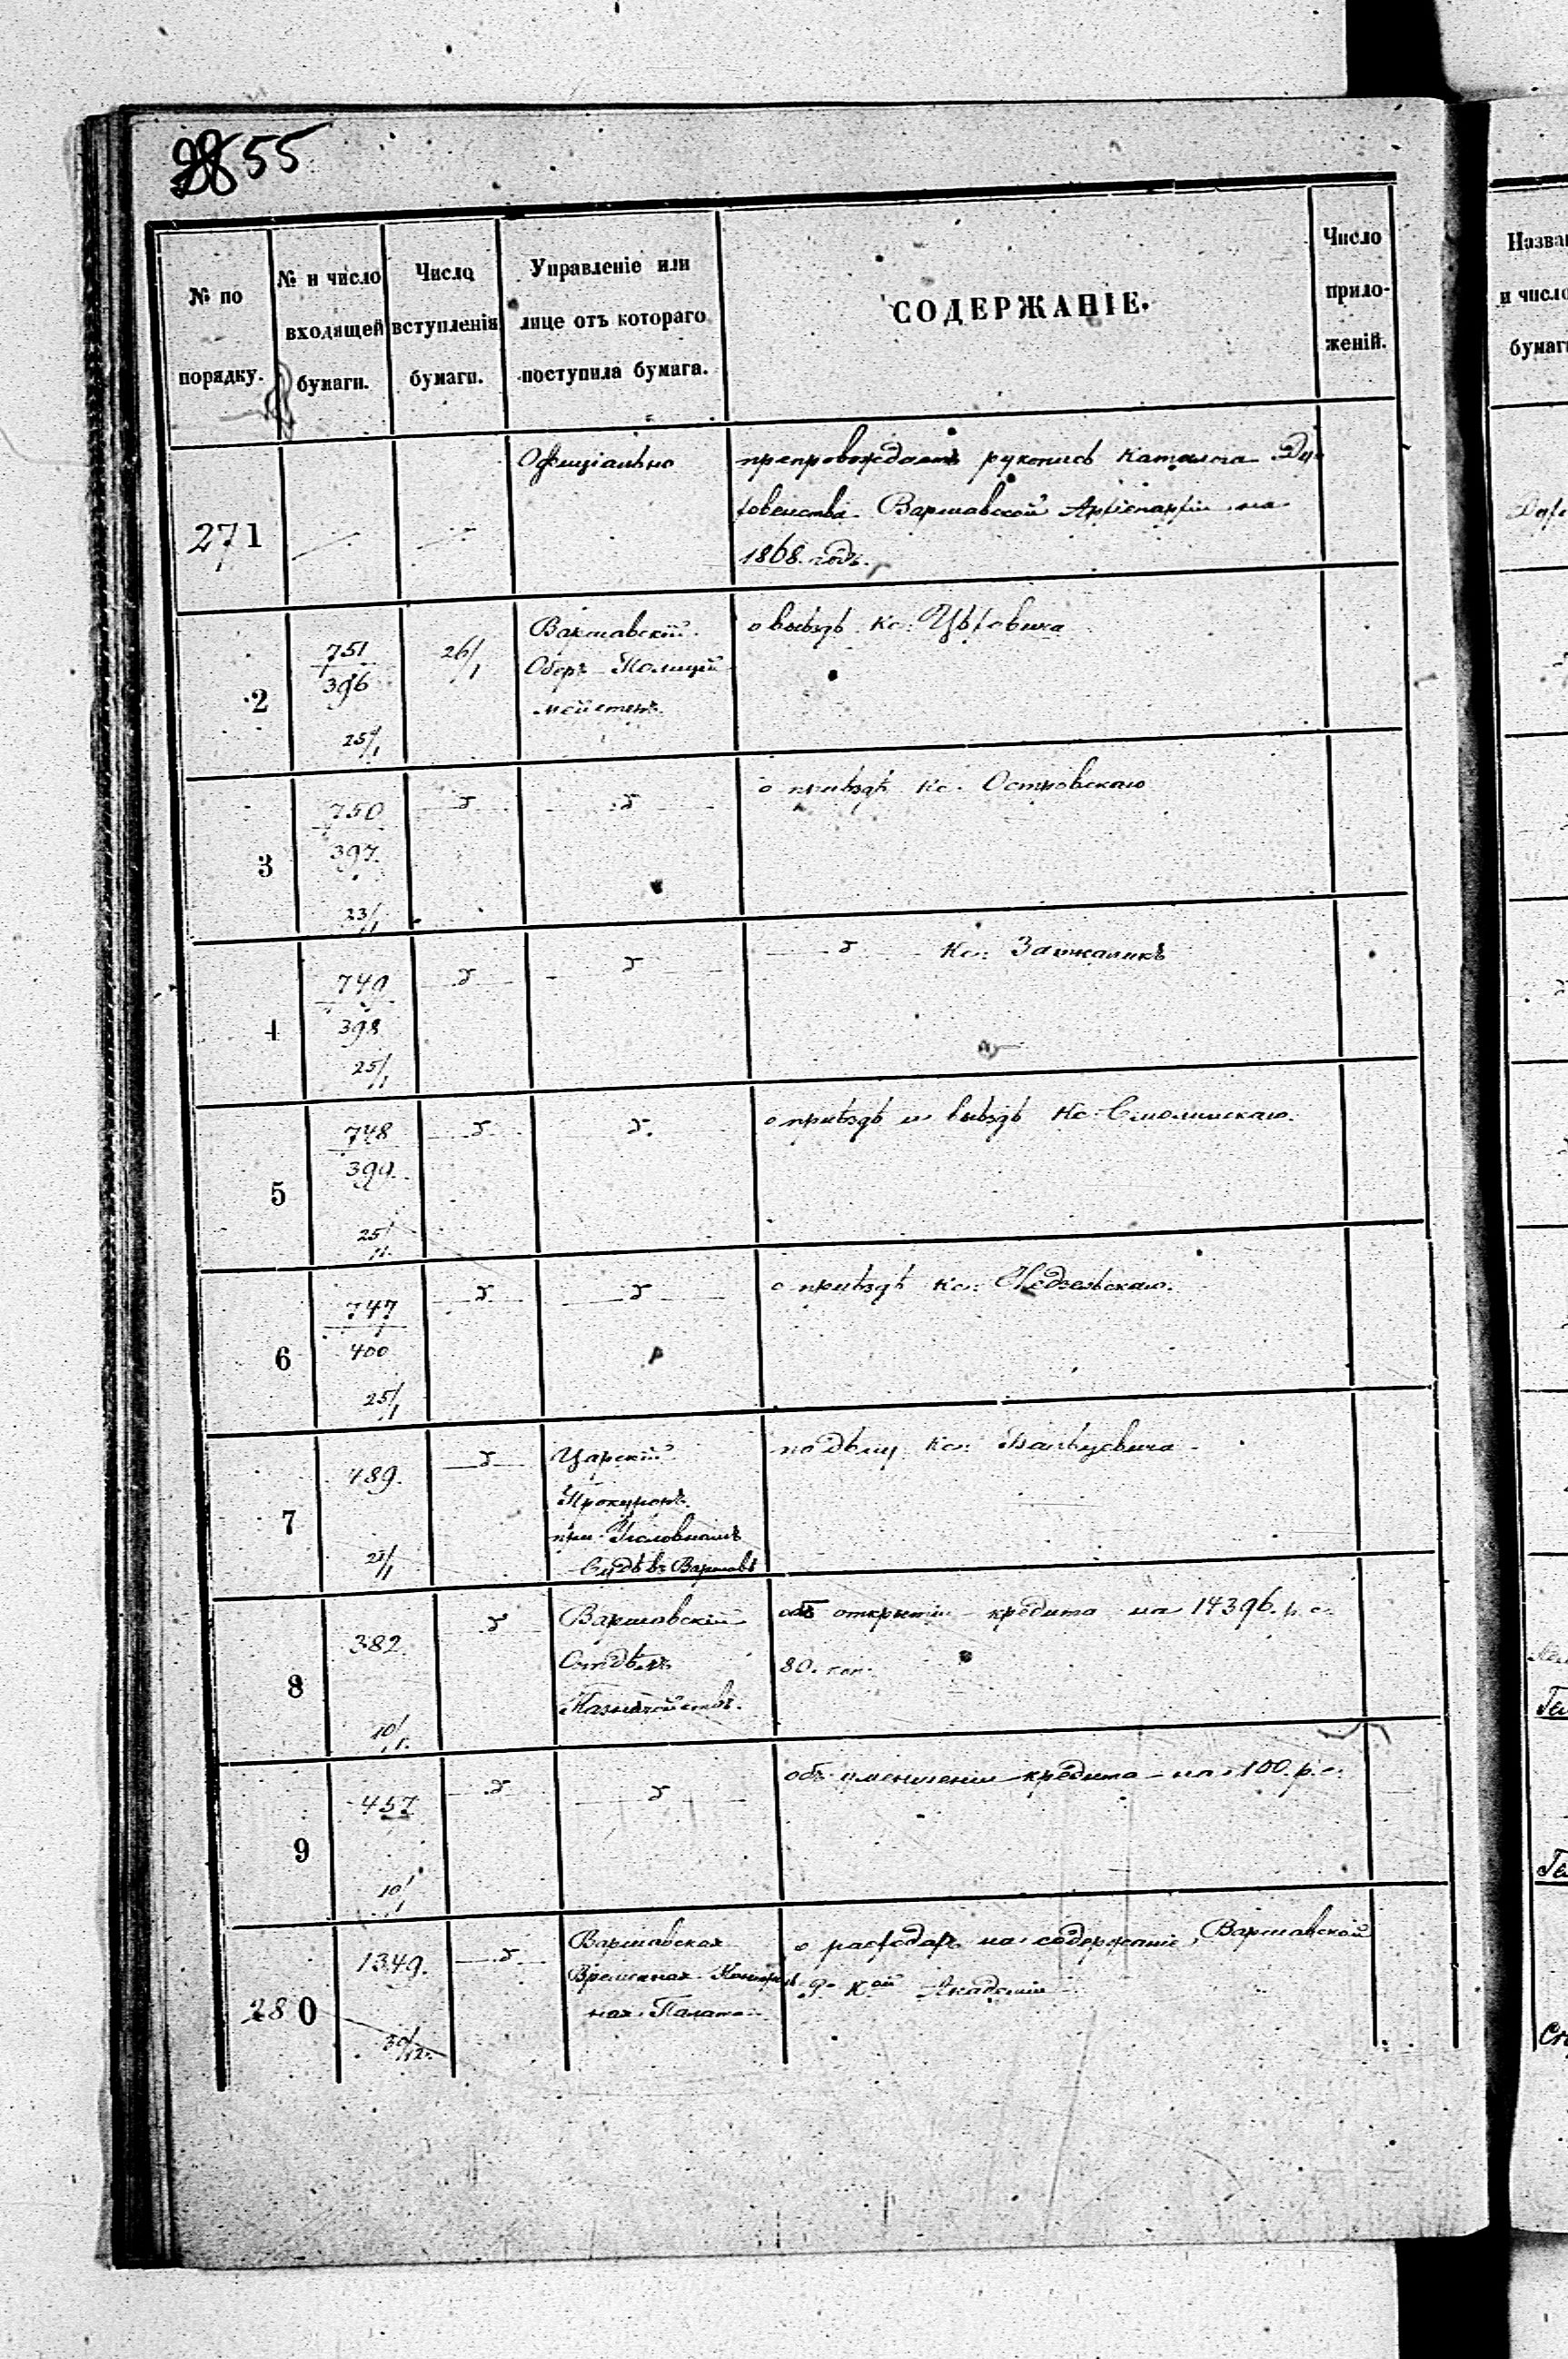 55
№ по порядку.
№ и число входящей бумаги.
Число вступленія бумаги.
Управленіе или лице отъ котораго поступила бумага.
СОДЕРЖАНІЕ.
Число приложеній.
271
Офиціально
препровождаетъ рукопись Каталога Ду
ховенства Варшавской Архіепархіи на
1868. годъ.
2
751
396
25/1
26/1
Варшавскій
Оберъ-Полицій
мейстеръ.
о выѣздѣ Кс:
3
750
397.
23/1
о пріѣздѣ Кс. Островскаго
4
749
398
25/1
Кс:
5
748
399.
25/1
о пріѣздѣ и выѣздѣ Кс. Смолинскаго.
6
747
400
25/1
о пріѣздѣ Кс: Недзельскаго.
7
489.
Царскій
Прокуроръ
при Уголовномъ
Судѣ въ Варшавѣ
по дѣлу Кс:
8
382.
10/1.
Варшавскій
Отдѣлъ
Казначействъ.
объ открытіи кредита на 14396. р. с.
80. коп.
9
457
10/1
объ уменшеніи кредита на 100. р. с.
280
1349.
30/12.
Варшавская
Временная Контроль
ная Палата
о расходахъ на содержаніе Варшавской
Д. Кой Академіи
Назва
и число
бумаг